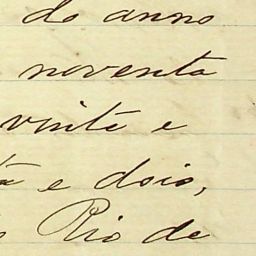 do anno
noventa
vinte e
e dois,
Rio de